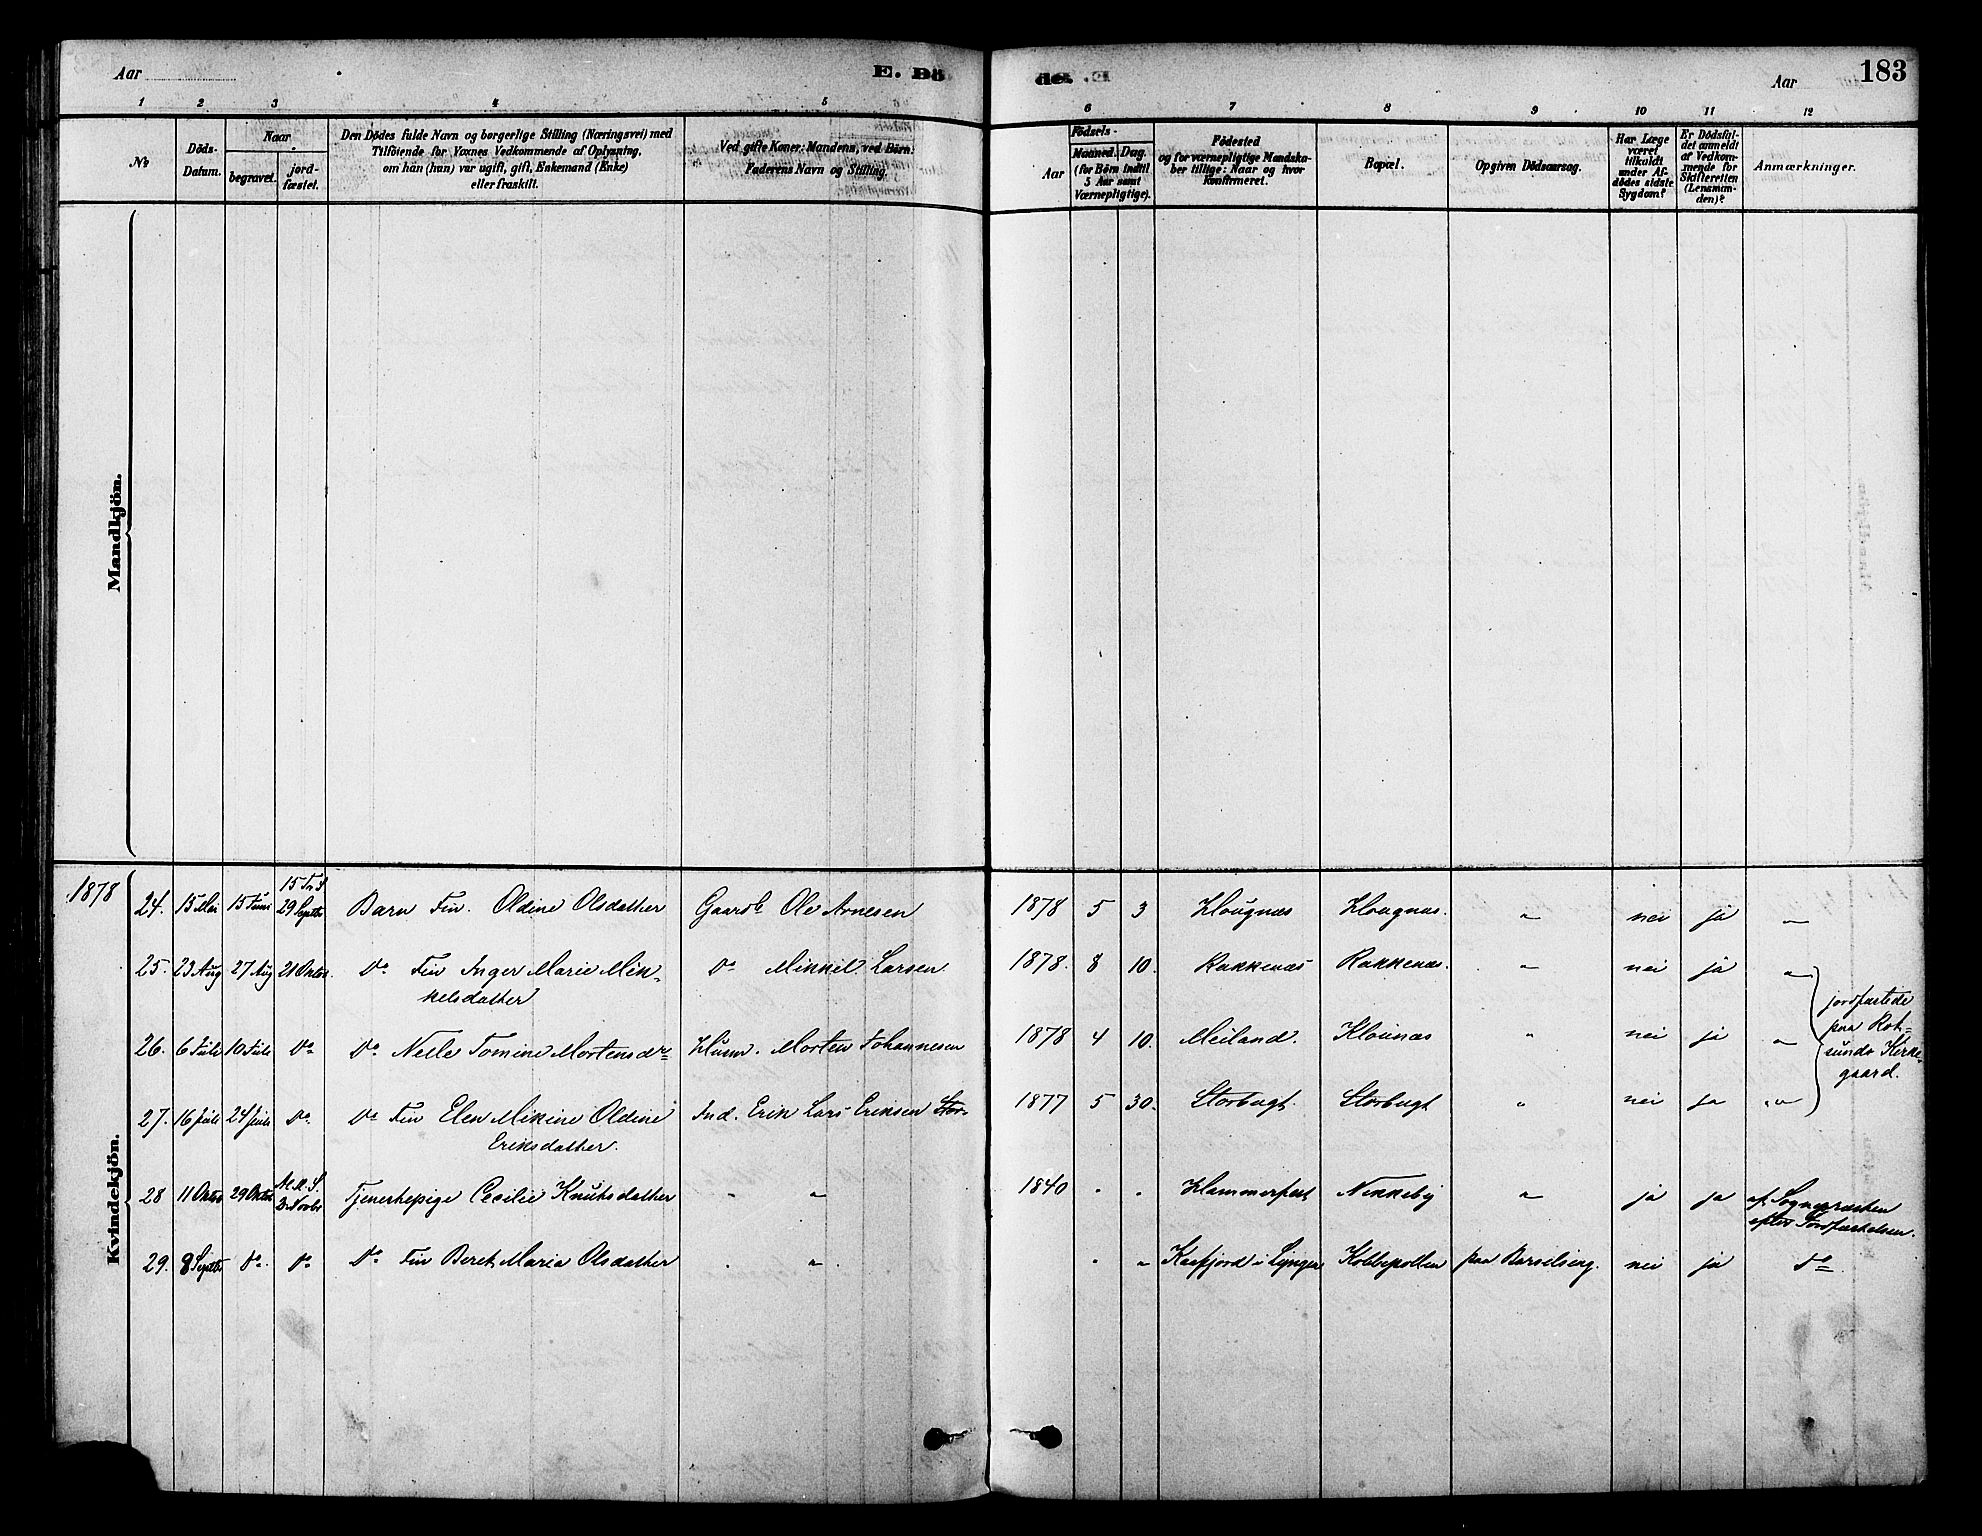 Aar
E. Dö
de. E.
Aar
183
1 2 3 4 5 6 7 8 9 10 11 12
No
Döds-
Datum.
Naar
begravet.
jord-
fæstet.
Den Dödes fulde Navn og borgerlige Stilling (Næringsvei) med
Tilföiende for Voxnes Vedkommende af Oplysning,
om han (hun) var ugift, gift, Enkemand (Enke)
eller fraskilt.
Ved gifte Koner: Mandens, ved Börn:
Faderens Navn og Stilling.
Födsels-
Aar
Maaned. Dag.
(for Börn indtil
5 Aar samt
Værnepligtige).
Födested
og for værnepligtige Mandska-
ber tillige: Naar og hvor
Konfirmeret.
Bopæl.
Opgiven Dödsaarsag.
Har Læge
været
tilkaldt
under Af-
dödes sidste
Sygdom?
Er Dödsfal-
det anmeldt
af Vedkom-
mende for
Skifteretten
(Lensman-
den)?
Anmærkninger.
Mandkjön.
Kvindekjön.
1878
24. 15 Mai 15 Juni 15 Tr. S. 29 Septbr Barn Fin. Oldine Olsdatter Gaardb. Ole Arnesen 1878 5 3 Klougnæs Klougnæs. " nei ja "
25. 23 Aug 27 Aug 21 Oktbr. Do Fin Inger Marie Mik-
kelsdatter Do Mikkil Larsen. 1878. 8 10. Rakkenæs Rakkenæs. " nei ja "
26. 6 Juli 10 Juli Do Do Nelle Tomine Mortensdr Huusm. Morten Johannesen 1878 4 10. Meiland. Klounæs " nei ja "
27. 16 Juli 24 Juli Do Do Fin Elen Mikine Oldine
Eriksdatter. Ind. Erik Lars Eriksen Stor- 1877 5 30. Storbugt. Storbugt " nei ja "
jordfæstede
paa Rot-
sunds Kirke-
gaard.
28 11 Oktbr 29 Oktbr 3 Novbr Tjenestepige Cecilie Knutsdatter " " 1840 " " Hammerfest Nikkeby " ja ja af Sognepræsten
efter Jordfæstelsen.
29. 8 Septbr Do. Do Do Fin Beret Maria Olsdatter " " " " Kaafjord i Lyngen Kobbepollen paa Barselseng. nei ja Do